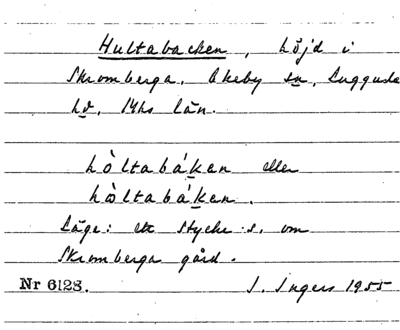 Hultabacken, höjd i
Skromberga, Ekeby sn, Luggude
hd, Mhs län.
hòltabáken eller
hòltabáken.
Läge: ett stycke s. om
Skromberga gård.
Nr 6128. I. Ingers 1955